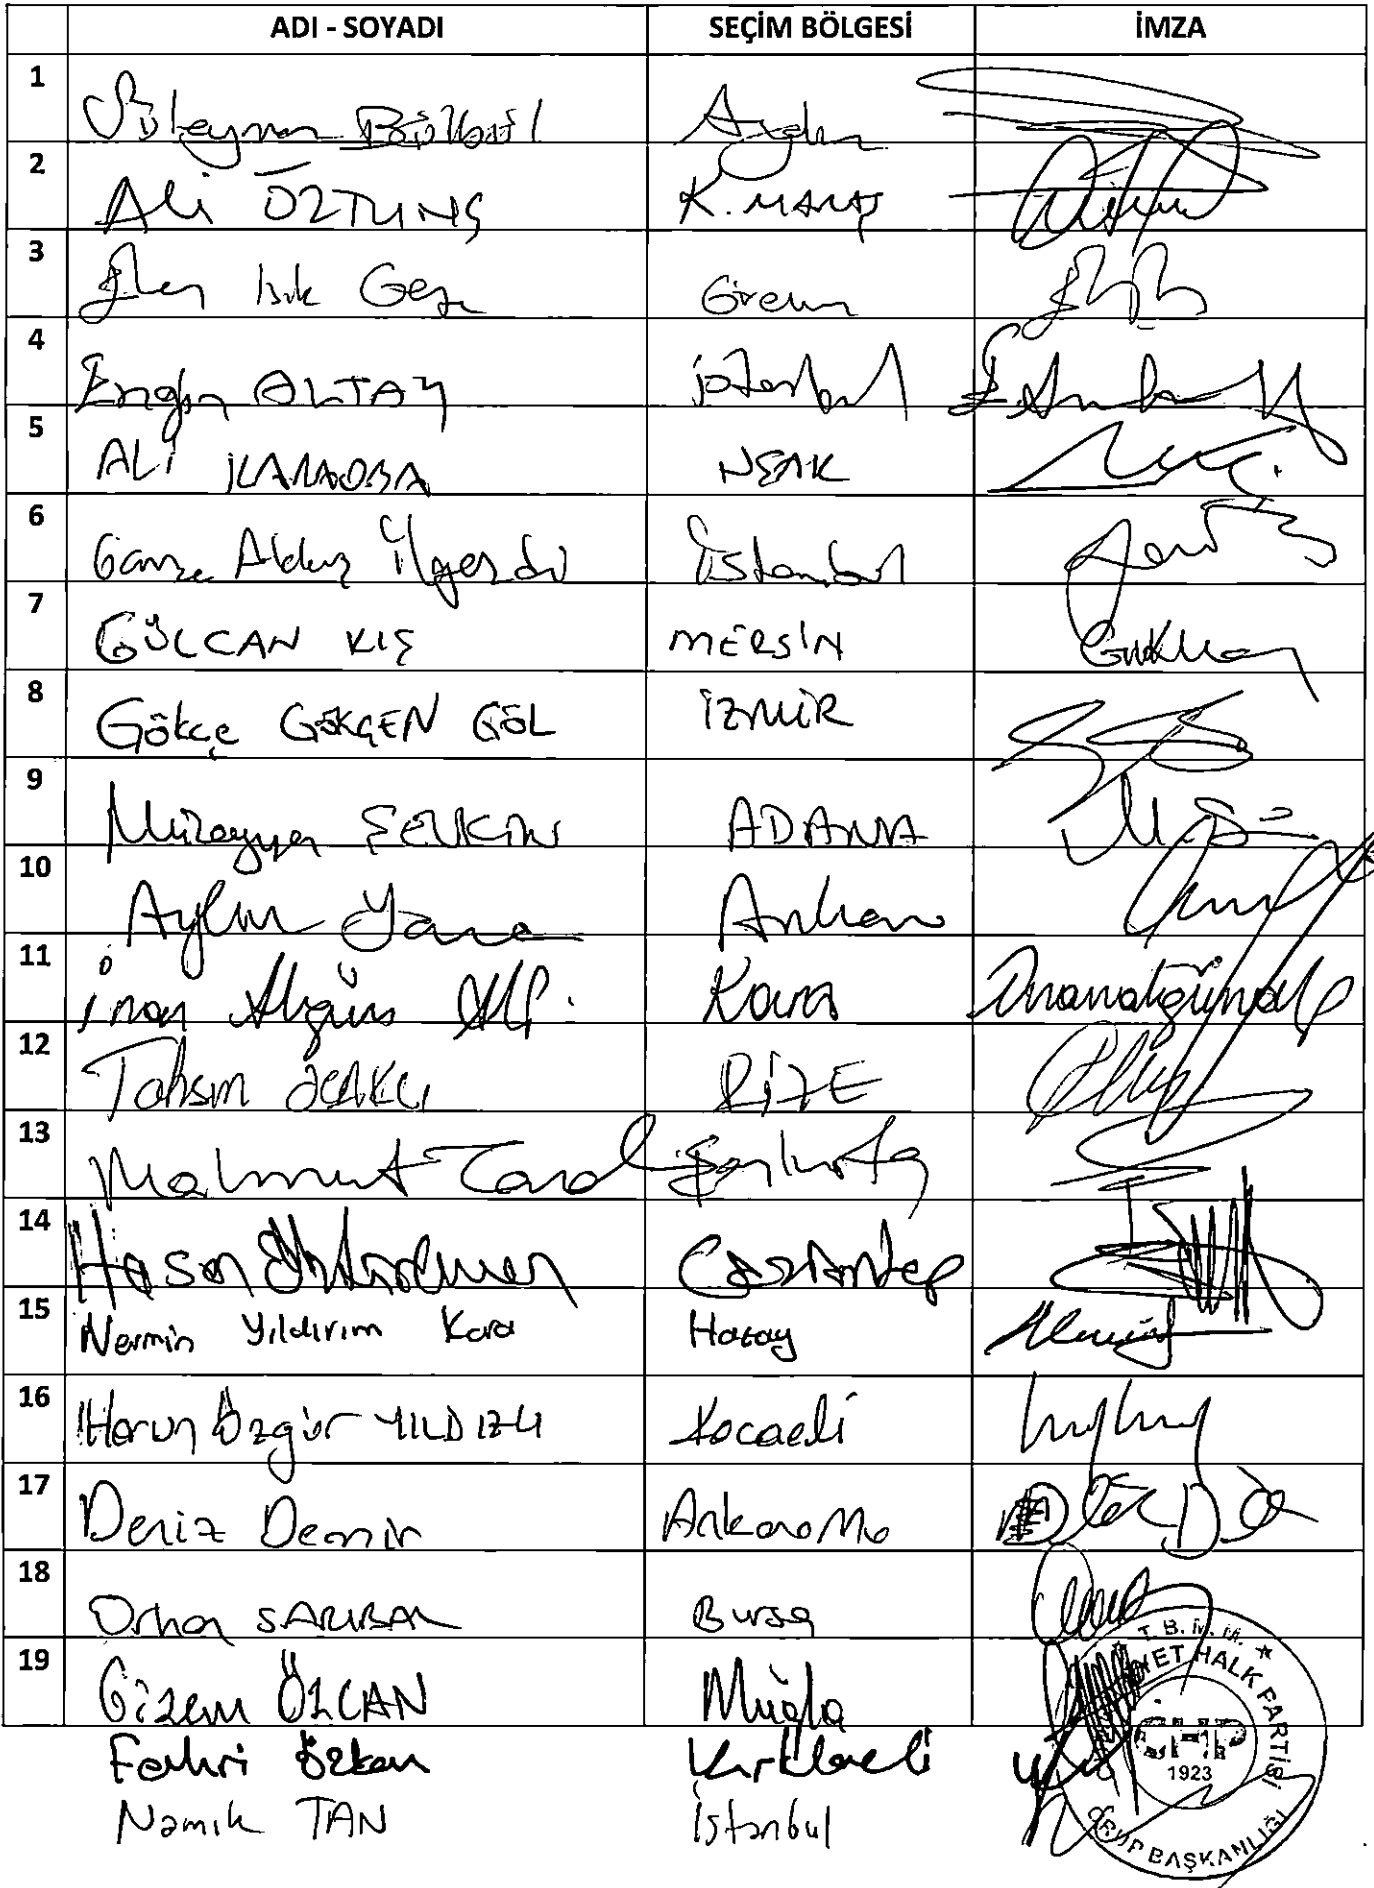 ADI - SOYADI SEÇİM BÖLGESİ İMZA
1 Süleyman Bülbül Aydın
2 Ali ÖZTUNÇ K. MARAŞ
3 Elvan Işık Gezm Giresun
4 Engin ALTAY İstanbul
5 ALİ KARAOBA UŞAK
6 Gamze Akkuş İlgezdi İstanbul
7 GÜLCAN KIŞ MERSİN
8 Gökçe GÖKÇEN GÖL İZMİR
9 Müzeyyen ŞEVKİN ADANA
10 Aylin Yaman Ankara
11 İnan Akgün Alp. Kars
12 Tahsin OCAKLI RİZE
13 Mahmut Tanal Şanlıurfa
14 Hasan Öztürkmen Gaziantep
15 Nermin Yıldırım Kara Hatay
16 Harun Özgür YILDIZLI Kocaeli
17 Deniz Demir Ankara
18 Orhan SARIBAL Bursa
19 Gizem ÖZCAN Muğla
Fahri Özkan Kırklareli
Namık TAN İstanbul
T.B.M.M. ★
HALK PARTİSİ
CHP
1923
GRUP BAŞKANLIĞI